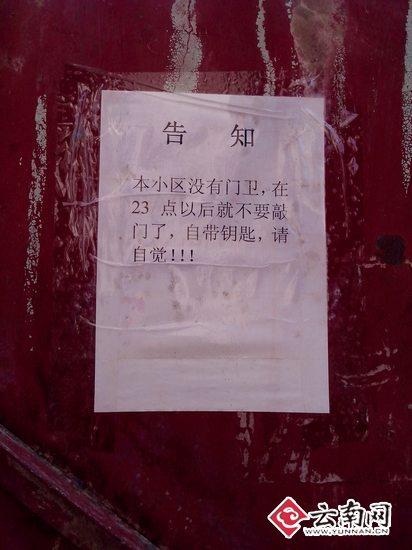 告 知
本小区没有门卫，在
23 点以后就不要敲
门了，自带钥匙，请
自觉！！！
云南网
WWW.YUNNAN.CN